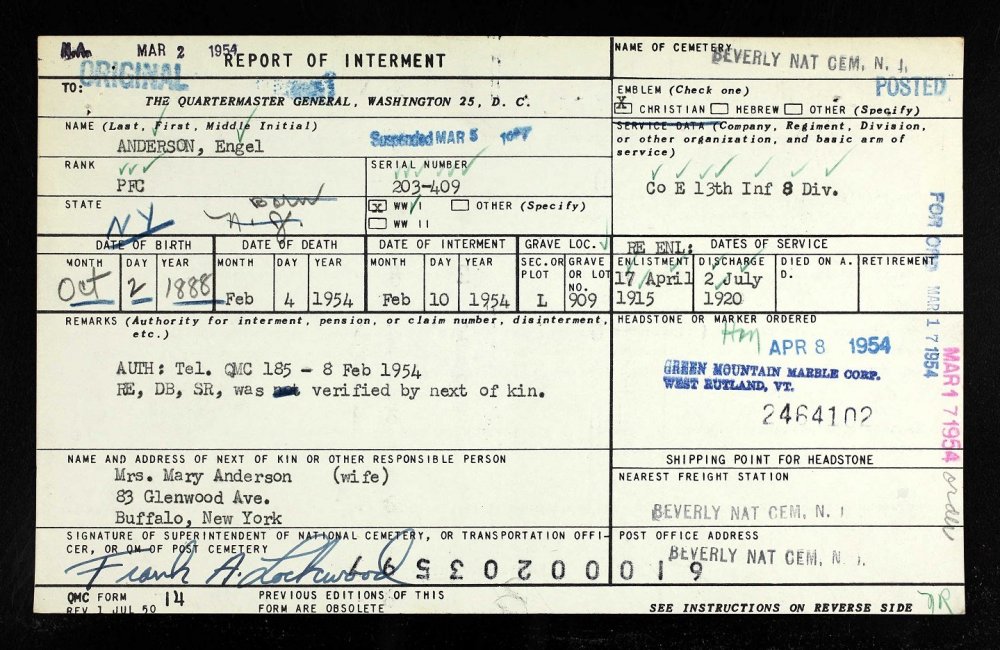 N.A. MAR 2 1954
REPORT OF INTERMENT
ORIGINAL
TO:
THE QUARTERMASTER GENERAL, WASHINGTON 25, D. C.
NAME OF CEMETERY
BEVERLY NAT CEM, N. J.
POSTED
EMBLEM (Check one)
X CHRISTIAN HEBREW OTHER (Specify)
NAME (Last, First, Middle Initial)
ANDERSON, Engel
Suspended MAR 5
SERVICE DATA (Company, Regiment, Division,
or other organization, and basic arm of
service)
Co E 13th Inf 8 Div.
RANK
PFC
SERIAL NUMBER
203-409
STATE
NY
Born
N.J.
X WW I OTHER (Specify)
WW II
DATE OF BIRTH
MONTH DAY YEAR
Oct 2 1888
DATE OF DEATH
MONTH DAY YEAR
Feb 4 1954
DATE OF INTERMENT
MONTH DAY YEAR
Feb 10 1954
GRAVE LOC.
SEC. OR PLOT
L
GRAVE OR LOT NO.
909
RE ENL: DATES OF SERVICE
ENLISTMENT DISCHARGE DIED ON A. D. RETIREMENT
17 April 2 July
1915 1920
REMARKS (Authority for interment, pension, or claim number, disinterment,
etc.)
AUTH: Tel. QMC 185 - 8 Feb 1954
RE, DB, SR, was not verified by next of kin.
HEADSTONE OR MARKER ORDERED
APR 8 1954
GREEN MOUNTAIN MARBLE CORP.
WEST RUTLAND, VT.
2464102
MAR 17 1954
MAR 17 1954
order
NAME AND ADDRESS OF NEXT OF KIN OR OTHER RESPONSIBLE PERSON
Mrs. Mary Anderson (wife)
83 Glenwood Ave.
Buffalo, New York
SHIPPING POINT FOR HEADSTONE
NEAREST FREIGHT STATION
BEVERLY NAT CEM, N. J
POST OFFICE ADDRESS
BEVERLY NAT CEM, N. J.
SIGNATURE OF SUPERINTENDENT OF NATIONAL CEMETERY, OR TRANSPORTATION OFFI-
CER, OR QM OF POST CEMETERY
Frank A. Lockwood
QMC FORM 14
REV 1 JUL 50
PREVIOUS EDITIONS OF THIS
FORM ARE OBSOLETE
SEE INSTRUCTIONS ON REVERSE SIDE